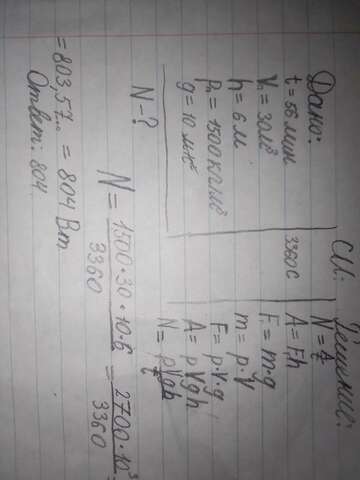 Дано:
t = 56 мин
V = 30 м³
h = 6 м
ρ = 1500 кг/м³
g = 10 м/с²
N - ?
СИ:
3360 с
Решение:
N = A/t
A = F·h
F = m·g
m = ρ·V
F = ρ·V·g
A = ρVgh
N = ρVgh/t
N = 1500·30·10·6/3360 = 2700·10³/3360
= 803,57... = 804 Вт
Ответ: 804